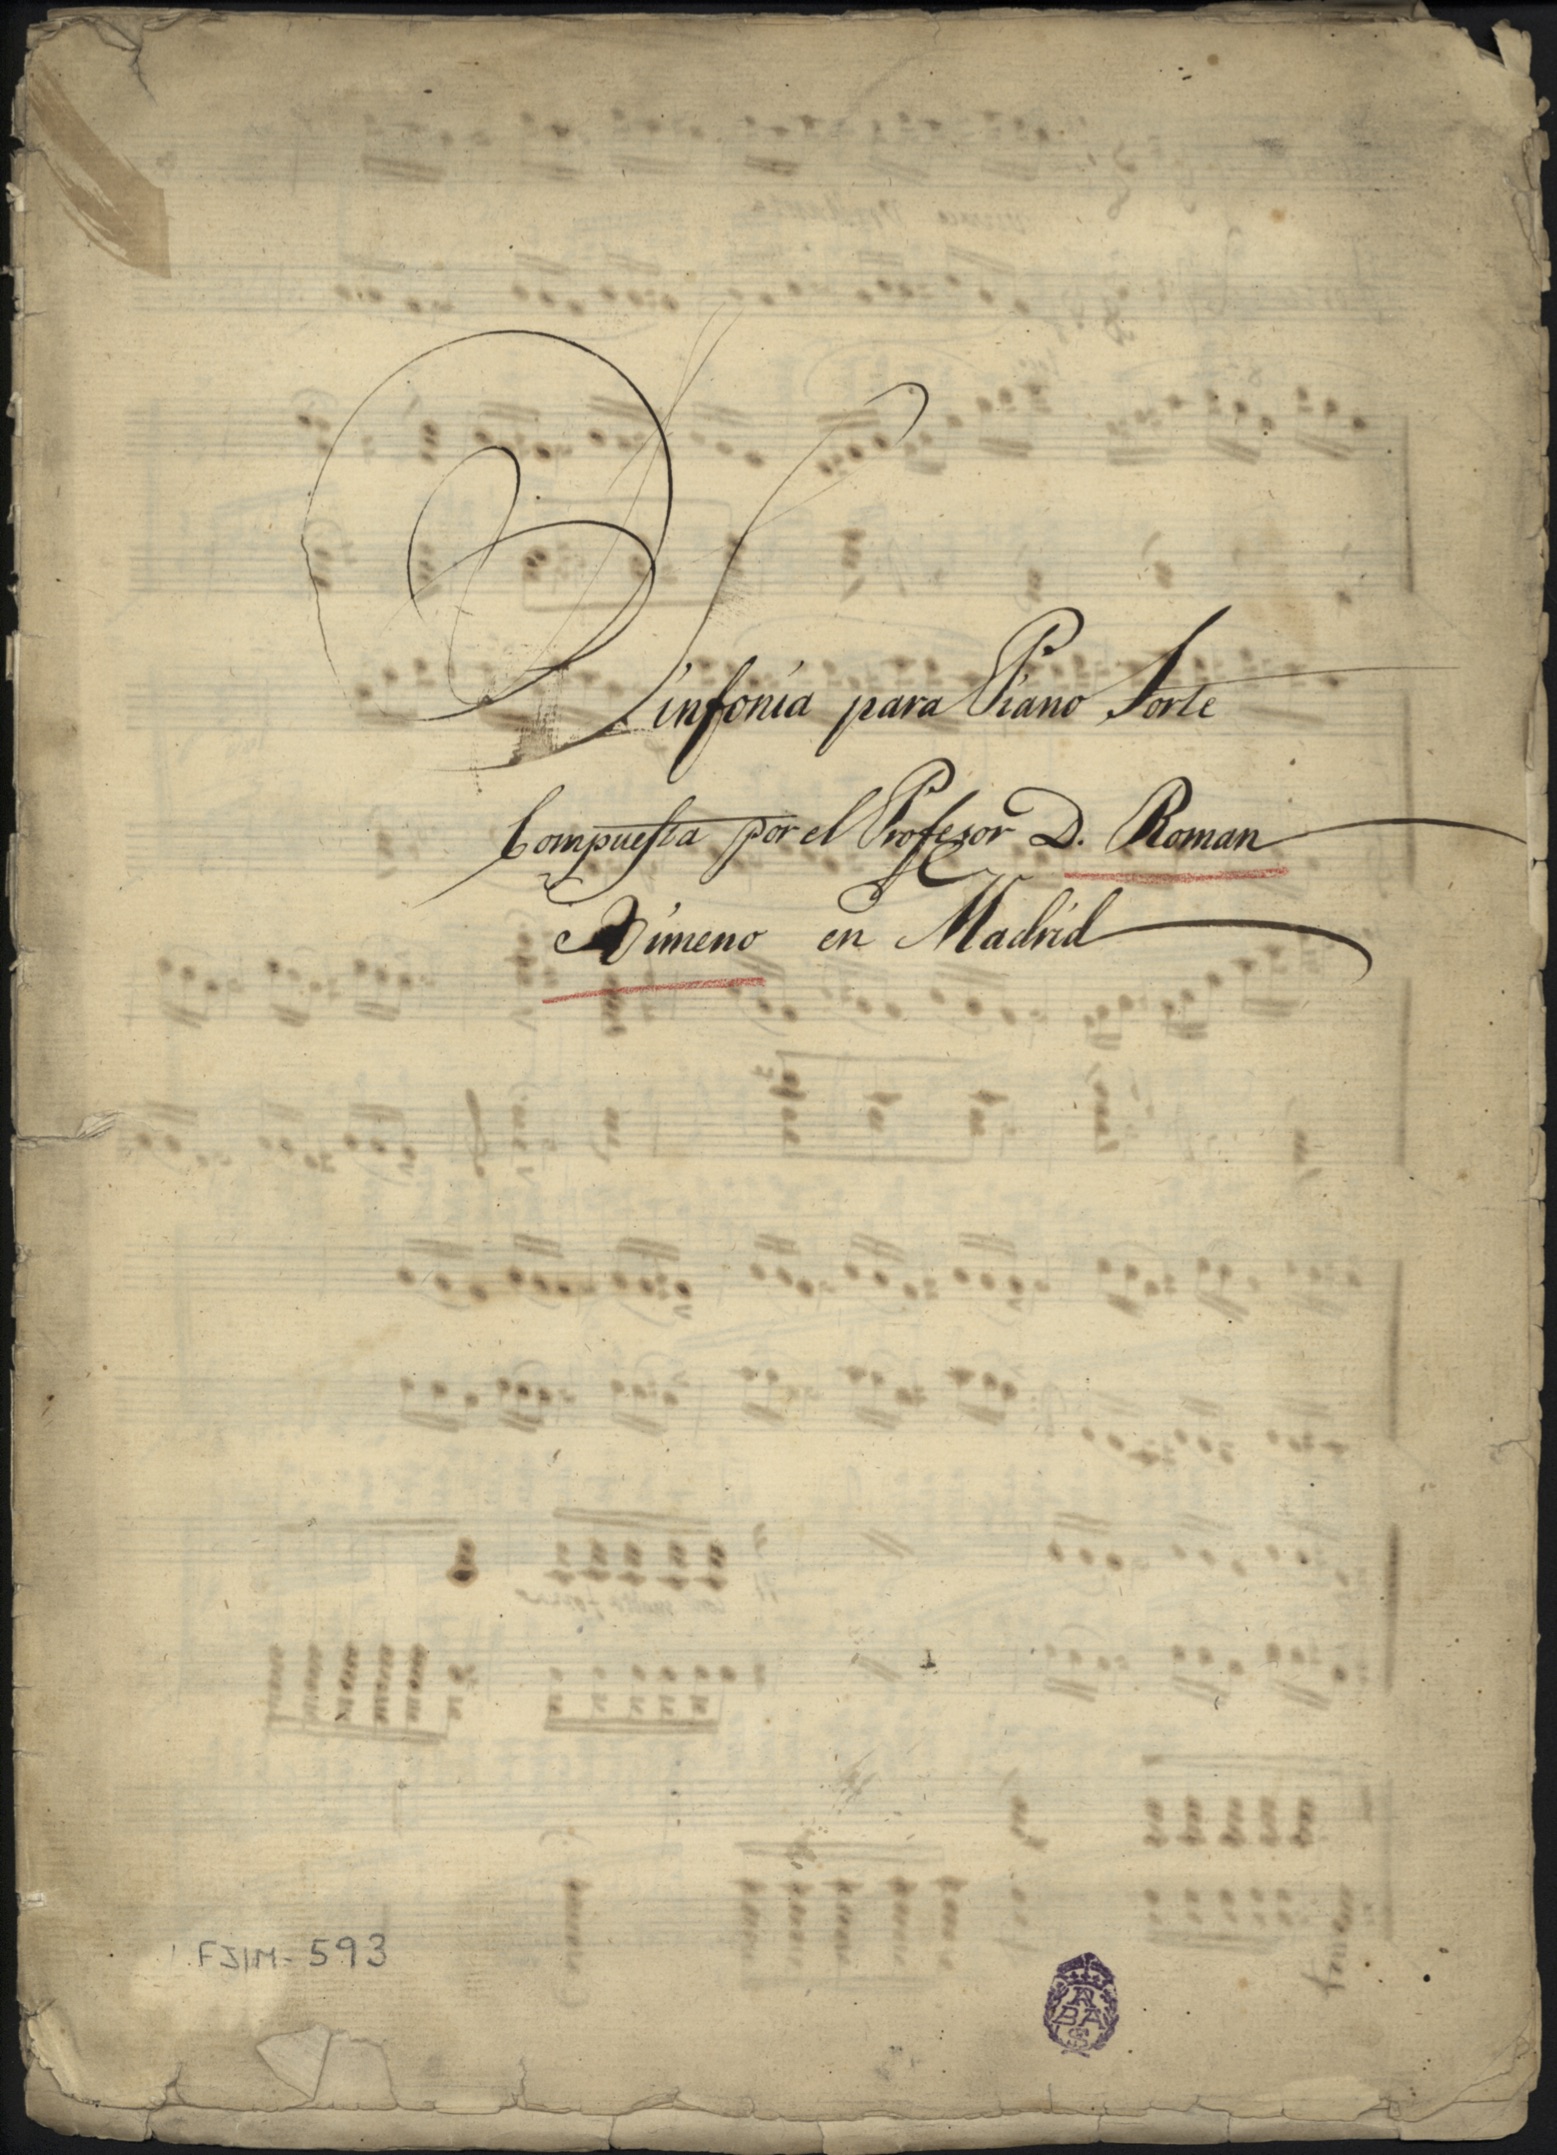 Sinfonia para Piano Forte
Compuesta por el Profesor D. Roman
Ximeno en Madrid
FJIM-593
RABAS